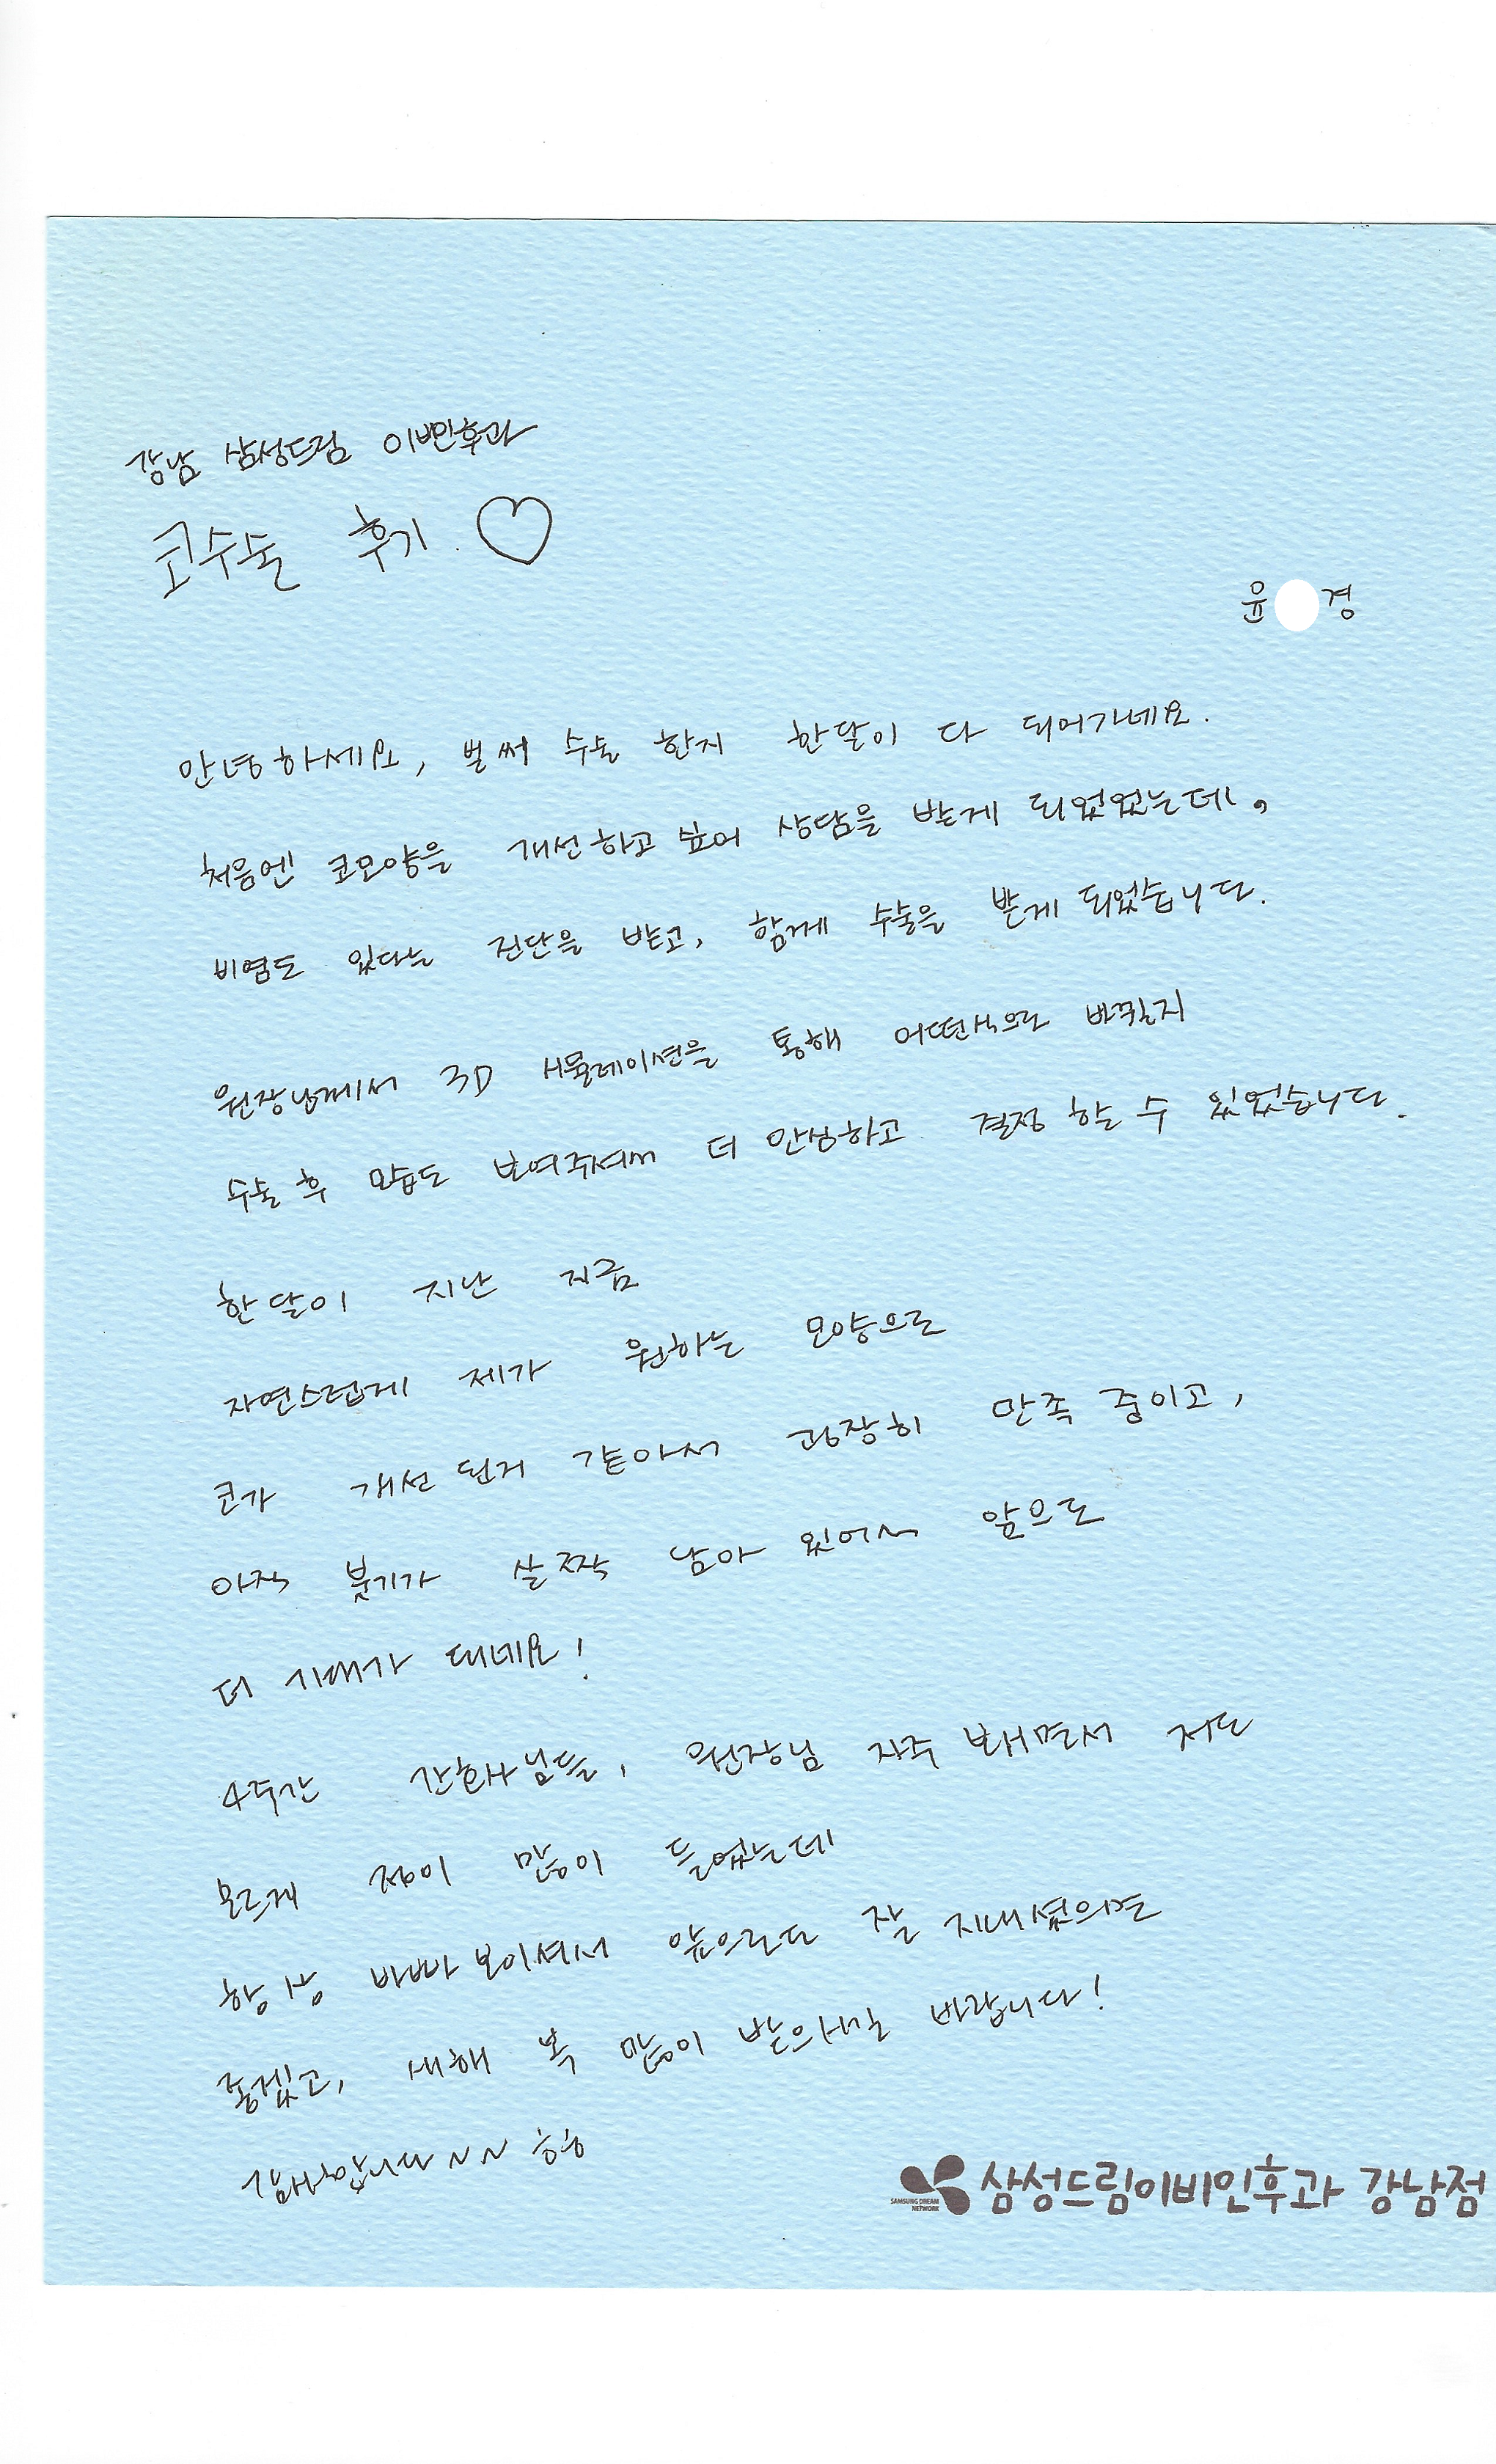 강남 삼성드림 이비인후과
코수술 후기 ♡
윤 경
안녕하세요, 벌써 수술 한지 한달이 다 되어가네요.
처음엔 코모양을 개선하고 싶어 상담을 받게 되었었는데,
비염도 있다는 진단을 받고, 함께 수술을 받게 되었습니다.
원장님께서 3D 시뮬레이션을 통해 어떤식으로 바뀔지
수술 후 모습도 보여주셔서 더 안심하고 결정 할 수 있었습니다.
한달이 지난 지금
자연스럽게 제가 원하는 모양으로
코가 개선 된거 같아서 굉장히 만족 중이고,
아직 붓기가 살짝 남아 있어서 앞으로
더 기대가 대네요!
4주간 간호사님들, 원장님 자주 뵈면서 저도
모르게 정이 많이 들었는데
항상 바빠보이셔서 앞으로도 잘 지내셨으면
좋겠고, 새해 복 많이 받으시길 바랍니다!
감사합니다~~ ㅎㅎ
SAMSUNG DREAM NETWORK 삼성드림이비인후과 강남점